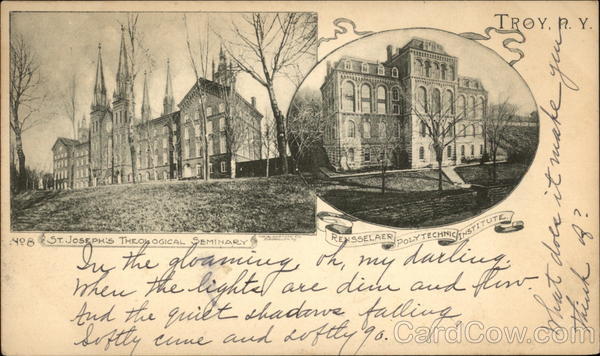 TROY, N. Y.
No 8 ST. JOSEPH'S THEOLOGICAL SEMINARY
RENSSELAER POLYTECHNIC INSTITUTE.
In the gloaming oh, my darling.
When the lights are dim and low.
And the quiet shadows falling
Softly come and softly go.
What does it make you
think of?
CardCow.com